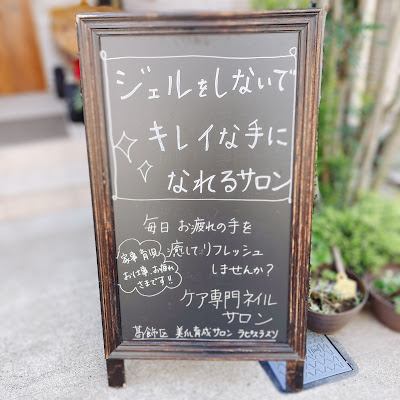 ジェルをしないで
キレイな手に
なれるサロン
毎日お疲れの手を
癒してリフレッシュ
しませんか？
家事 育児
お仕事、お疲れ
さまです!!
ケア専門ネイル
サロン
葛飾区 美爪育成サロン ラピスラズリ